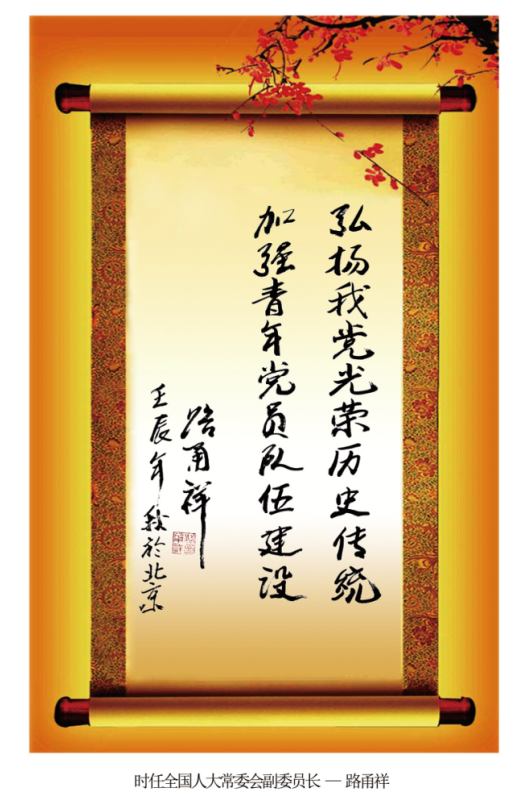 弘扬我党光荣历史传统
加强青年党员队伍建设
路甬祥
壬辰年秋於北京
时任全国人大常委会副委员长 — 路甬祥